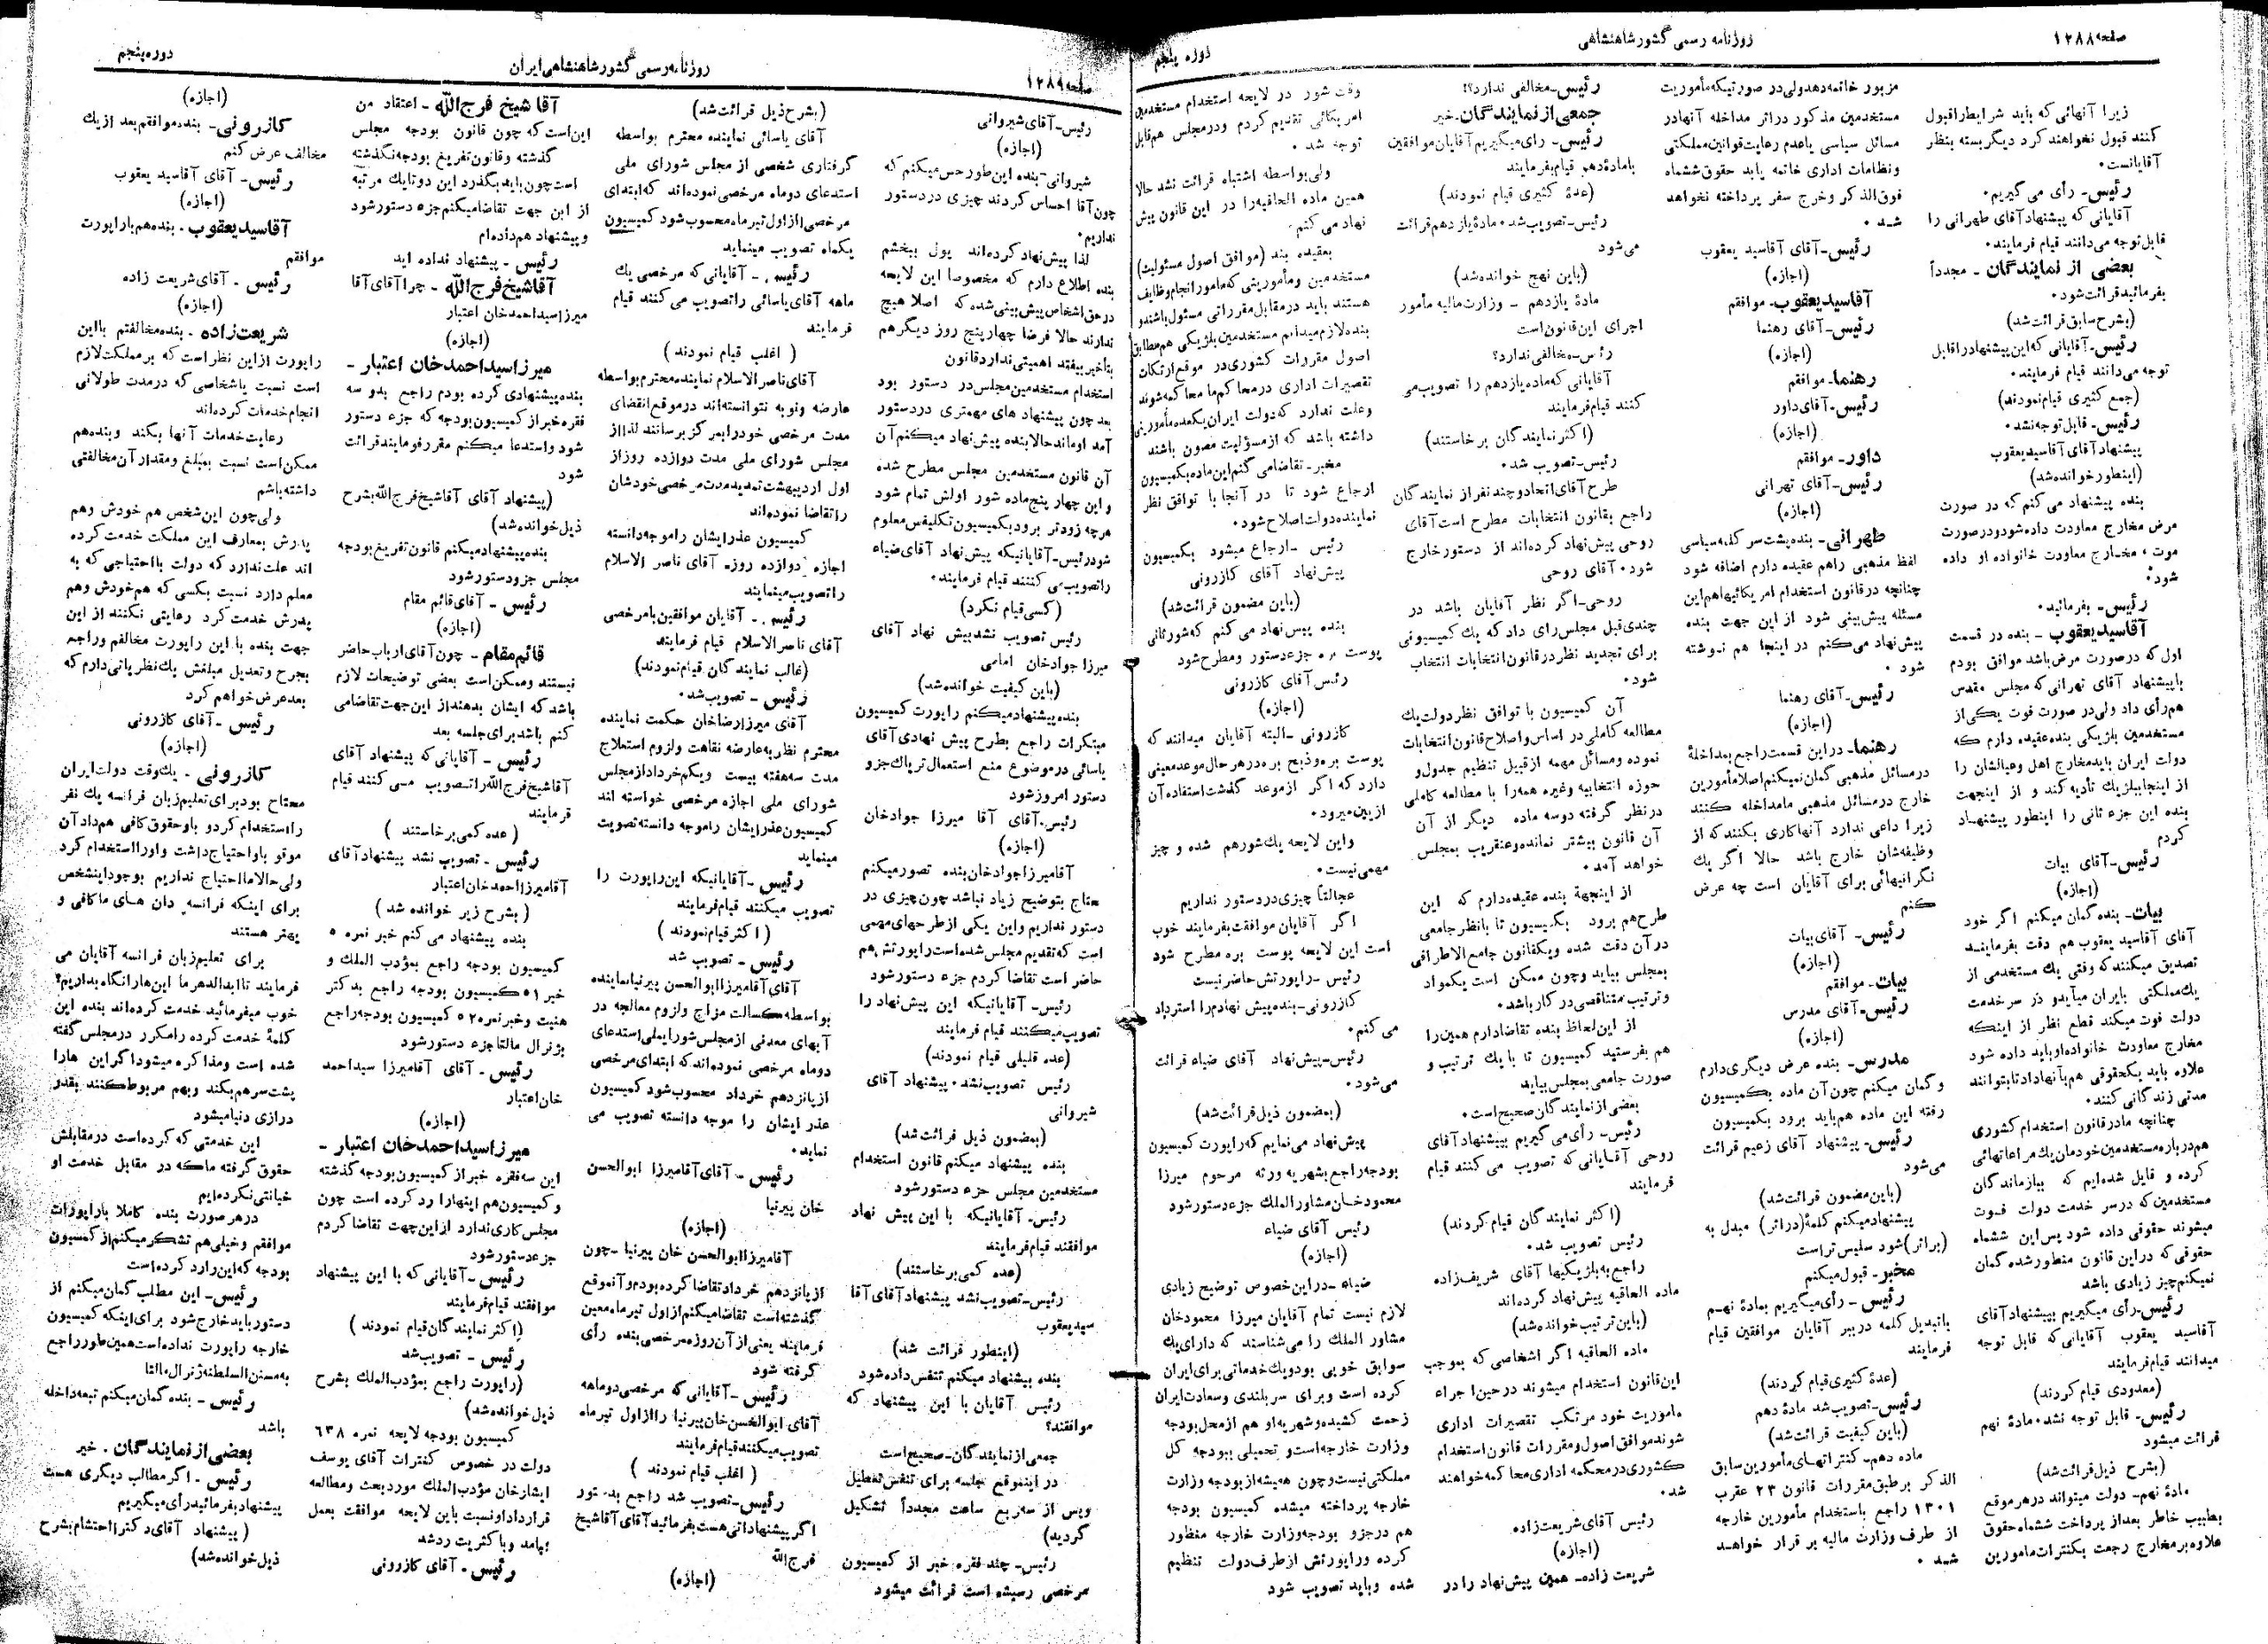 صفحه ۱۲۸۸
روزنامه رسمی کشور شاهنشاهی
دوره پنجم
زیرا آنهائی که باید شرایط را قبول
کنند قبول نخواهند کرد دیگر بسته بنظر
آقایانست.
رئیس- رأی می گیریم.
آقایانی که پیشنهاد آقای طهرانی را
قابل توجه می‌دانند قیام فرمایند.
بعضی از نمایندگان - مجدداً
بفرمائید قرائت شود.
(بشرح سابق قرائت شد)
رئیس- آقایانی که این پیشنهاد را قابل
توجه می‌دانند قیام فرمایند.
(جمع کثیری قیام نمودند)
رئیس- قابل توجه نشد.
پیشنهاد آقای آقاسید یعقوب
(اینطور خوانده شد)
بنده پیشنهاد می کنم که در صورت
مرض مخارج معاودت داده شود و در صورت
موت، مخارج معاودت خانواده او داده
شود.
رئیس- بفرمائید.
آقاسید یعقوب - بنده در قسمت
اول که در صورت مرض باشد موافق بودم
با پیشنهاد آقای تهرانی که مجلس مقدس
هم رأی داد ولی در صورت فوت یکی از
مستخدمین بلژیکی بنده عقیده دارم که
دولت ایران باید مخارج اهل و عیالشان را
از اینجا ببلژیک تأدیه کند و از اینجهت
بنده این جزء ثانی را اینطور پیشنهاد
کردم
رئیس- آقای بیات
(اجازه)
بیات- بنده گمان میکنم اگر خود
آقای آقاسید یعقوب هم دقت بفرمایند
تصدیق میکنند که وقتی یك مستخدمی از
یك مملکتی بایران میآید و در سر خدمت
دولت فوت میکند قطع نظر از اینکه
مخارج معاودت خانواده او باید داده شود
علاوه باید یکحقوقی هم بآنها داد تا بتوانند
مدتی زندگانی کنند.
چنانچه ما در قانون استخدام کشوری
هم درباره مستخدمین خودمان یك مراعاتهائی
کرده و قایل شده‌ایم که ببازماندگان
مستخدمین که در سر خدمت دولت فوت
میشوند حقوقی داده شود پس این ششماه
حقوقی که در این قانون منظور شده گمان
نمیکنم چیز زیادی باشد
رئیس- رأی میگیریم بپیشنهاد آقای
آقاسید یعقوب آقایانی که قابل توجه
میدانند قیام فرمایند
(معدودی قیام کردند)
رئیس- قابل توجه نشد. مادهٔ نهم
قرائت میشود
(بشرح ذیل قرائت شد)
مادهٔ نهم- دولت میتواند در هر موقع
بطیب خاطر بعد از پرداخت ششماه حقوق
علاوه بر مخارج رجعت بکنترات مامورین
مزبور خاتمه دهد ولی در صورتیکه مأموریت
مستخدمین مذکور در اثر مداخله آنها در
مسائل سیاسی یا عدم رعایت قوانین مملکتی
و نظامات اداری خاتمه یابد حقوق ششماه
فوق الذکر و خرج سفر پرداخته نخواهد
شد.
رئیس- آقای آقاسید یعقوب
(اجازه)
آقاسید یعقوب- موافقم
رئیس- آقای رهنما
(اجازه)
رهنما- موافقم
رئیس- آقای داور
(اجازه)
داور- موافقم
رئیس- آقای تهرانی
(اجازه)
طهرانی- بنده پشت سر کلمه سیاسی
لفظ مذهبی را هم عقیده دارم اضافه شود
چنانچه در قانون استخدام امریکائیها هم این
مسئله پیش‌بینی شود از این جهت بنده
پیش‌نهاد می‌کنم در اینجا هم نوشته
شود.
رئیس- آقای رهنما
(اجازه)
رهنما- در این قسمت راجع بمداخلهٔ
در مسائل مذهبی گمان نمیکنم اصلا مأمورین
خارج در مسائل مذهبی ما مداخله کنند
زیرا داعی ندارد آنها کاری بکنند که از
وظیفه‌شان خارج باشد حالا اگر یك
نگرانیهائی برای آقایان است چه عرض
کنم
رئیس- آقای بیات
(اجازه)
بیات- موافقم
رئیس- آقای مدرس
(اجازه)
مدرس- بنده عرض دیگری دارم
و گمان میکنم چون آن ماده بکمیسیون
رفته این ماده هم باید برود بکمیسیون
رئیس- پیشنهاد آقای زعیم قرائت
می‌شود
(باین مضمون قرائت شد)
پیشنهاد میکنم کلمهٔ (در اثر) مبدل به
(بر اثر) شود سلیس تر است
مخبر- قبول میکنم
رئیس- رأی میگیریم بمادهٔ نهم
با تبدیل کلمه در ببر آقایان موافقین قیام
فرمایند
(عدهٔ کثیری قیام کردند)
رئیس- تصویب شد مادهٔ دهم
(باین کیفیت قرائت شد)
ماده دهم- کنتراتهای مأمورین سابق
الذکر بر طبق مقررات قانون ۲۳ عقرب
۱۳۰۱ راجع باستخدام مأمورین خارجه
از طرف وزارت مالیه بر قرار خواهد
شد.
رئیس- مخالفی ندارد؟!
جمعی از نمایندگان- خیر
رئیس- رای میگیریم آقایان موافقین
با مادهٔ دهم قیام بفرمایند
(عدهٔ کثیری قیام نمودند)
رئیس- تصویب شد. مادهٔ یازدهم قرائت
می‌شود
(باین نهج خوانده شد)
مادهٔ یازدهم - وزارت مالیه مأمور
اجرای این قانون است
رئیس- مخالفی ندارد؟
آقایانی که ماده یازدهم را تصویب می
کنند قیام فرمایند
(اکثر نمایندگان برخاستند)
رئیس- تصویب شد.
طرح آقای اتحاد و چند نفر از نمایندگان
راجع بقانون انتخابات مطرح است آقای
روحی پیش‌نهاد کرده‌اند از دستور خارج
شود. آقای روحی
روحی- اگر نظر آقایان باشد در
چندی قبل مجلس رای داد که یك کمیسیونی
برای تجدید نظر در قانون انتخابات انتخاب
شود.
آن کمیسیون با توافق نظر دولت یك
مطالعه کاملی در اساس و اصلاح قانون انتخابات
نموده و مسائل مهمه از قبیل تنظیم جدول و
حوزه انتخابیه و غیره همه را با مطالعه کاملی
در نظر گرفته دو سه ماده دیگر از آن
آن قانون بیشتر نمانده و عنقریب بمجلس
خواهد آمد.
از اینجهة بنده عقیده دارم که این
طرح هم برود بکمیسیون تا با نظر جامعی
در آن دقت شده و یکقانون جامع الاطرافی
بمجلس بیاید و چون ممکن است یکمواد
و ترتیب متناقصی در کار باشد.
از این لحاظ بنده تقاضا دارم همین را
هم بفرستید کمیسیون تا با یك ترتیب و
صورت جامعی بمجلس بیاید
بعضی از نمایندگان صحیح است.
رئیس- رأی می گیریم بپیشنهاد آقای
روحی آقایانی که تصویب می کنند قیام
فرمایند
(اکثر نمایندگان قیام کردند)
رئیس تصویب شد.
راجع به بلژیکیها آقای شریف‌زاده
ماده الحاقیه پیش‌نهاد کرده‌اند
(باین ترتیب خوانده شد)
ماده الحاقیه اگر اشخاصی که بموجب
این قانون استخدام میشوند در حین اجراء
ماموریت خود مرتکب تقصیرات اداری
شوند موافق اصول و مقررات قانون استخدام
کشوری در محکمه اداری محاکمه خواهند
شد.
رئیس آقای شریعت‌زاده
(اجازه)
شریعت زاده- همین پیش‌نهاد را در
وقت شور در لایحه استخدام مستخدمین
امریکائی تقدیم کردم و در مجلس هم قابل
توجه شد.
ولی بواسطه اشتباه قرائت نشد حالا
همین ماده الحاقیه را در این قانون پیش
نهاد می کنم.
بعقیده بنده (موافق اصول مسئولیت)
مستخدمین و مأمورینی که مامور انجام وظایف
هستند باید در مقابل مقرراتی مسئول باشند و
بنده لازم میدانم مستخدمین بلژیکی هم مطابق
اصول مقررات کشوری در موقع ارتکاب
تقصیرات اداری در محاکم ما محاکمه شوند
و علت ندارد که دولت ایران یکعده مأمورینی
داشته باشد که از مسؤلیت مصون باشند
مخبر- تقاضا می کنم این ماده بکمیسیون
ارجاع شود تا در آنجا با توافق نظر
نماینده دولت اصلاح شود.
رئیس - ارجاع میشود بکمیسیون
پیش‌نهاد آقای کازرونی
(باین مضمون قرائت شد)
بنده پیش‌نهاد می کنم که شور ثانی
پوست بره جزء دستور و مطرح شود
رئیس آقای کازرونی
(اجازه)
کازرونی - البته آقایان میدانند که
پوست بره و ذبح بره در هر حال موعد معینی
دارد که اگر از موعد گذشت استفاده آن
از بین میرود.
و این لایحه یك شورهم شده و چیز
مهمی نیست.
عجالتاً چیزی در دستور نداریم
اگر آقایان موافقت بفرمایند خوب
است این لایحه پوست بره مطرح شود
رئیس - راپورتش حاضر نیست
کازرونی- بنده پیش نهادم را استرداد
می کنم.
رئیس- پیش‌نهاد آقای ضیاء قرائت
می‌شود.
(بمضمون ذیل قرائت شد)
پیش‌نهاد می‌نمایم که راپورت کمیسیون
بودجه راجع بشهریه ورثه مرحوم میرزا
محمودخان مشاور الملك جزء دستور شود
رئیس آقای ضیاء
(اجازه)
ضیاء - در این خصوص توضیح زیادی
لازم نیست تمام آقایان میرزا محمودخان
مشاور الملك را می‌شناسند که دارای یك
سوابق خوبی بود و یك خدماتی برای ایران
کرده است و برای سربلندی و سعادت ایران
زحمت کشیده و شهریه او هم از محل بودجه
وزارت خارجه است و تحمیلی ببودجه کل
مملکتی نیست و چون همیشه از بودجه وزارت
خارجه پرداخته میشده کمیسیون بودجه
هم در جزو بودجه وزارت خارجه منظور
کرده و راپورتش از طرف دولت تنظیم
شده و باید تصویب شود
صفحه ۱۲۸۹
روزنامه رسمی کشور شاهنشاهی ایران
دوره پنجم
رئیس- آقای شیروانی
(اجازه)
شیروانی- بنده این طور حس میکنم که
چون آقا احساس کردند چیزی در دستور
نداریم.
لذا پیش‌نهاد کرده‌اند پول ببخشم
بنده اطلاع دارم که مخصوصا این لایحه
در حق اشخاص پیش‌بینی شده که اصلا هیچ
ندارند حالا فرضا چهار پنج روز دیگر هم
بتاخیر بیفتد اهمیتی ندارد قانون
استخدام مستخدمین مجلس در دستور بود
بعد چون پیشنهاد های مهمتری در دستور
آمد او ماند حالا بنده پیش‌نهاد میکنم آن
آن قانون مستخدمین مجلس مطرح شده
و این چهار پنج ماده شور اولش تمام شود
هر چه زودتر برود بکمیسیون تکلیفش معلوم
شود رئیس- آقایانیکه پیش‌نهاد آقای ضیاء
را تصویب می کنند قیام فرمایند.
(کسی قیام نکرد)
رئیس تصویب نشد پیش نهاد آقای
میرزا جوادخان امامی
(باین کیفیت خوانده شد)
بنده پیشنهاد میکنم راپورت کمیسیون
مبتکرات راجع بطرح پیش نهادی آقای
یاسائی در موضوع منع استعمال تریاك جزو
دستور امروز شود
رئیس. آقای آقا میرزا جوادخان
(اجازه)
آقا میرزا جوادخان بنده تصور میکنم
محتاج بتوضیح زیاد نباشد چون چیزی در
دستور نداریم و این یکی از طرحهای مهمی
است که تقدیم مجلس شده است راپورتش هم
حاضر است تقاضا کردم جزء دستور شود
رئیس- آقایانیکه این پیش‌نهاد را
تصویب میکنند قیام فرمایند
(عده قلیلی قیام نمودند)
رئیس تصویب نشد. پیشنهاد آقای
شیروانی
(بمضمون ذیل قرائت شد)
بنده پیشنهاد میکنم قانون استخدام
مستخدمین مجلس جزء دستور شود
رئیس- آقایانیکه با این پیش نهاد
موافقند قیام فرمایند
(عده کمی برخاستند)
رئیس- تصویب نشد پیشنهاد آقای آقا
سید یعقوب
(اینطور قرائت شد)
بنده پیشنهاد میکنم تنفس داده شود
رئیس آقایان با این پیشنهاد که
موافقند؟
جمعی از نمایندگان- صحیح است
در اینموقع جلسه برای تنفس تعطیل
و پس از سه ربع ساعت مجدداً تشکیل
گردید)
رئیس- چند فقره خبر از کمیسیون
مرخصی رسیده است قرائت میشود
(بشرح ذیل قرائت شد)
آقای یاسائی نماینده محترم بواسطه
گرفتاری شخصی از مجلس شورای ملی
استدعای دوماه مرخصی نموده‌اند که ابتدای
مرخصی از اول تیر ماه محسوب شود کمیسیون
یکماه تصویب مینماید
رئیس - آقایانی که مرخصی یك
ماهه آقای یاسائی را تصویب می کنند قیام
فرمایند
(اغلب قیام نمودند)
آقای ناصر الاسلام نماینده محترم بواسطه
عارضه و نوبه نتوانسته‌اند در موقع انقضای
مدت مرخصی خود را بمرکز برسانند لذا از
مجلس شورای ملی مدت دوازده روز از
اول اردیبهشت تمدید مدت مرخصی خودشان
را تقاضا نموده‌اند
کمیسیون عذر ایشان را موجه دانسته
اجازه دوازده روزه آقای ناصر الاسلام
را تصویب مینمایند
رئیس - آقایان موافقین با مرخصی
آقای ناصر الاسلام قیام فرمایند
(غالب نمایندگان قیام نمودند)
رئیس - تصویب شد.
آقای میرزا رضاخان حکمت نماینده
محترم نظر به عارضه نقاهت و لزوم استعلاج
مدت سه هفته بیست و یکم خرداد از مجلس
شورای ملی اجازه مرخصی خواسته اند
کمیسیون عذر ایشان را موجه دانسته تصویت
مینماید
رئیس - آقایانیکه این راپورت را
تصویب میکنند قیام فرمایند
(اکثر قیام نمودند)
رئیس - تصویب شد
آقای آقا میرزا ابوالحسن پیرنیا نماینده
بواسطه کسالت مزاج و لزوم معالجه در
آبهای معدنی از مجلس شورایملی استدعای
دوماه مرخصی نموده‌اند که ابتدای مرخصی
از پانزدهم خرداد محسوب شود کمیسیون
عذر ایشان را موجه دانسته تصویب می
نماید.
رئیس - آقای آقا میرزا ابوالحسن
خان پیرنیا
(اجازه)
آقا میرزا ابوالحسن خان پیرنیا - چون
از پانزدهم خرداد تقاضا کرده بودم و آنموقع
گذشته است تقاضا میکنم از اول تیر ماه معین
فرمایند یعنی از آن روزه مرخصی بنده رأی
گرفته شود
رئیس - آقایانی که مرخصی دو ماهه
آقای ابوالحسن خان پیرنیا را از اول تیر ماه
تصویب میکنند قیام فرمایند
(اغلب قیام نمودند)
رئیس- تصویب شد راجع بدستور
اگر پیشنهاداتی هست بفرمائید آقای آقا شیخ
فرج الله
(اجازه)
آقا شیخ فرج الله - اعتقاد من
این است که چون قانون بودجه مجلس
گذشته و قانون تفریغ بودجه نگذشته
است چون باید بگذرد این دو تا یك مرتبه
از این جهت تقاضا میکنم جزء دستور شود
و پیشنهاد هم داده‌ام
رئیس - پیشنهاد نداده اید
آقا شیخ فرج الله - چرا آقای آقا
میرزا سید احمد خان اعتبار
(اجازه)
میرزا سید احمد خان اعتبار -
بنده پیشنهادی کرده بودم راجع بدو سه
فقره خبر از کمیسیون بودجه که جزء دستور
شود و استدعا میکنم مقرر فرمایند قرائت
شود
(پیشنهاد آقای آقا شیخ فرج الله بشرح
ذیل خوانده شد)
بنده پیشنهاد میکنم قانون تفریغ بودجه
مجلس جزو دستور شود
رئیس - آقای قائم مقام
(اجازه)
قائم مقام - چون آقای ارباب حاضر
نیستند و ممکن است بعضی توضیحات لازم
باشد که ایشان بدهند از این جهت تقاضا می
کنم باشد برای جلسه بعد
رئیس - آقایانی که پیشنهاد آقای
آقا شیخ فرج الله را تصویب می کنند قیام
فرمایند
(عده کمی برخاستند)
رئیس - تصویب نشد پیشنهاد آقای
آقا میرزا احمد خان اعتبار
(بشرح زیر خوانده شد)
بنده پیشنهاد می کنم خبر نمره ۵
کمیسیون بودجه راجع بمؤدب الملك و
خبر ۵۱ کمیسیون بودجه راجع بدکتر
هنیت و خبر نمره ۵۲ کمیسیون بودجه راجع
بژنرال مالتا جزء دستور شود
رئیس - آقای آقا میرزا سید احمد
خان اعتبار
(اجازه)
میرزا سید احمد خان اعتبار -
این سه فقره خبر از کمیسیون بودجه گذشته
و کمیسیون هم اینها را رد کرده است چون
مجلس کاری ندارد از این جهت تقاضا کردم
جزء دستور شود
رئیس - آقایانی که با این پیشنهاد
موافقند قیام فرمایند
(اکثر نمایندگان قیام نمودند)
رئیس - تصویب شد
(راپورت راجع بمؤدب الملك بشرح
ذیل خوانده شد)
کمیسیون بودجه لایحه نمره ۶۳۸
دولت در خصوص کنترات آقای یوسف
ایشارخان مؤدب الملك مورد بحث و مطالعه
قرار داد و نسبت باین لایحه موافقت بعمل
نیامد و با کثریت رد شد
رئیس - آقای کازرونی
(اجازه)
کازرونی- بنده موافقم بعد از یك
مخالف عرض کنم
رئیس - آقای آقاسید یعقوب
(اجازه)
آقاسید یعقوب. بنده هم با راپورت
موافقم
رئیس - آقای شریعت زاده
(اجازه)
شریعت‌زاده - بنده مخالفتم با این
راپورت از این نظر است که بر مملکت لازم
است نسبت باشخاصی که در مدت طولانی
انجام خدمات کرده‌اند
رعایت خدمات آنها بکند و بنده هم
ممکن است نسبت بمبلغ و مقدار آن مخالفتی
داشته باشم
ولی چون این شخص هم خودش و هم
پدرش بمعارف این مملکت خدمت کرده
اند علت ندارد که دولت با احتیاجی که به
معلم دارد نسبت بکسی که هم خودش و هم
پدرش خدمت کرد رعایتی نکنند از این
جهت بنده با این راپورت مخالفم و راجع
بجرح و تعدیل مبلغش یك نظریاتی دارم که
بعد عرض خواهم کرد
رئیس - آقای کازرونی
(اجازه)
کازرونی - یك وقت دولت ایران
محتاج بود برای تعلیم زبان فرانسه یك نفر
را استخدام کرد و باو حقوق کافی هم داد آن
موقع باو احتیاج داشت و او را استخدام کرد
ولی حالا ما احتیاج نداریم بوجود اینشخص
برای اینکه فرانسه دان های ما کافی و
بهتر هستند
برای تعلیم زبان فرانسه آقایان می
فرمایند تا ابدالدهر ما این‌ها را نگاه بداریم؟
خوب میفرمائید خدمت کرده‌اند بنده این
کلمهٔ خدمت کرده را مکرر در مجلس گفته
شده است و مذاکره میشود اگر این ها را
پشت سر هم بکند و بهم مربوط کنند بقدر
درازی دنیا میشود
این خدمتی که کرده‌است در مقابلش
حقوق گرفته ما که در مقابل خدمت او
خیانتی نکرده‌ایم
در هر صورت بنده کاملا با راپورت
موافقم و خیلی هم تشکر میکنم از کمیسیون
بودجه که این را رد کرده است
رئیس- این مطلب گمان میکنم از
دستور باید خارج شود برای اینکه کمیسیون
خارجه راپورت نداده است همین طور راجع
به مستن السلطنه ژنرال مالتا
رئیس - بنده گمان میکنم تبعه داخله
باشد
بعضی از نمایندگان. خیر
رئیس - اگر مطالب دیگری هست
پیشنهاد بفرمائید رأی میگیریم
(پیشنهاد آقای دکتر احتشام بشرح
ذیل خوانده شد)